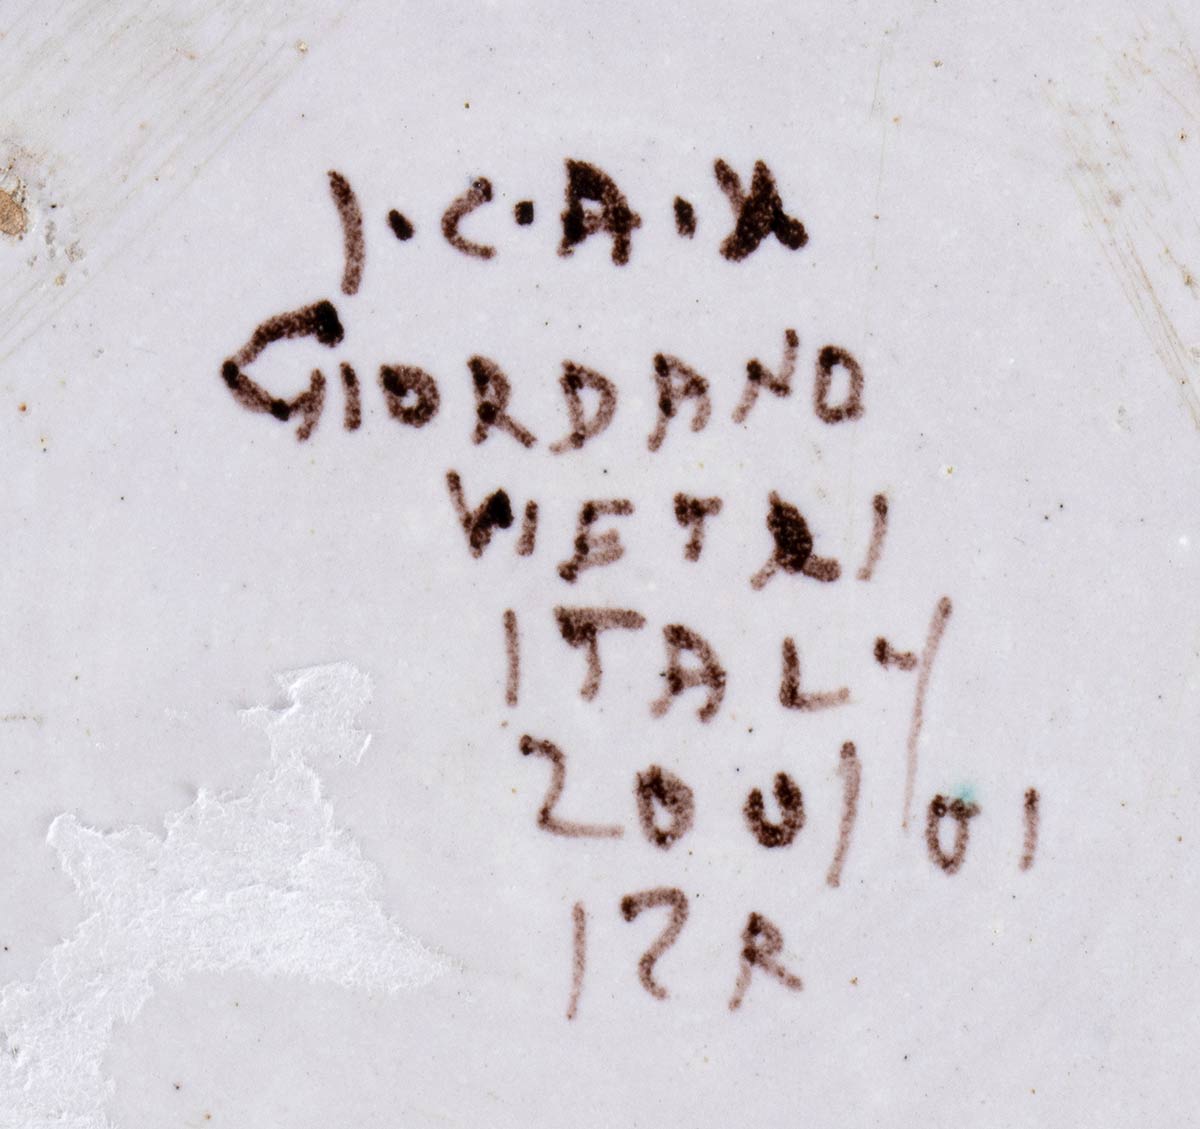 I.C.A.V
GIORDANO
VIETRI
ITALY
200/01
12R